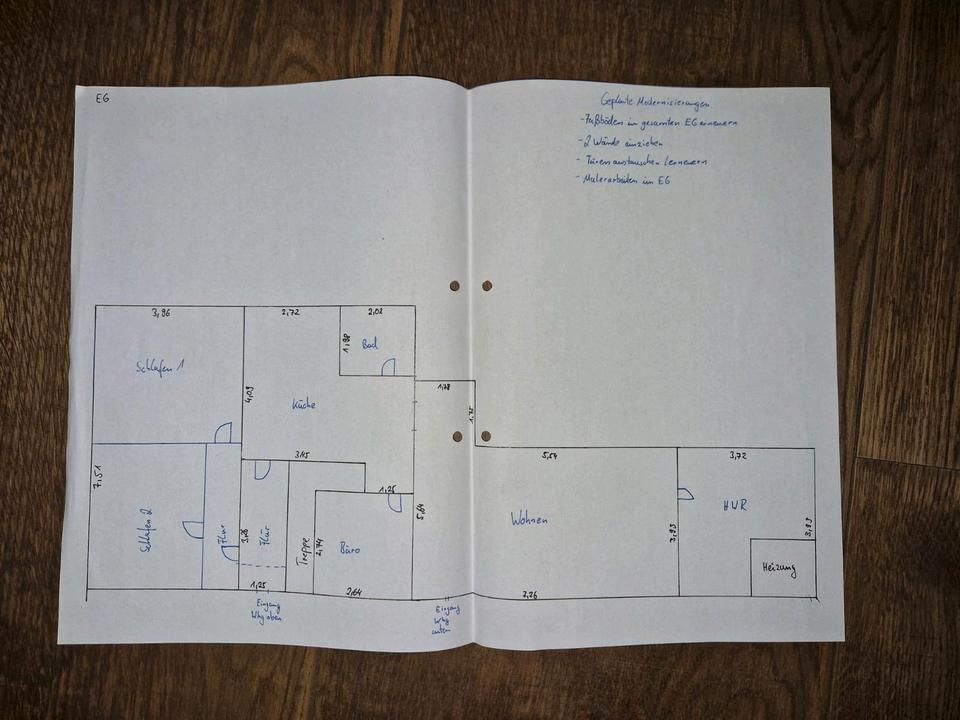 EG
Geplante Modernisierungen
- Fußböden im gesamten EG erneuern
- 2 Wände einziehen
- Türen austauschen / erneuern
- Malerarbeiten im EG
3,96
2,72
2,02
1,98
Bad
Schlafen 1
4,09
Küche
1,78
1,75
3,45
5,54
3,72
7,51
1,25
5,64
Schlafen 2
Flur
3,26
Flur
Treppe
2,74
Büro
Wohnen
3,93
HWR
3,93
Heizung
1,25
2,64
7,26
Eingang
Whg oben
Eingang
Whg
unten